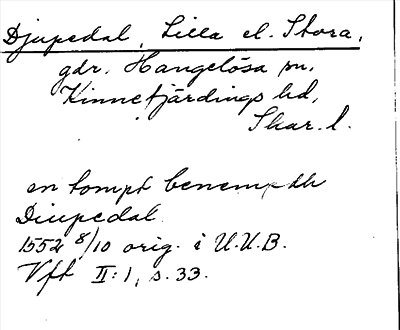 Djupedal, Lilla el. Stora,
gdr. Hangelösa sn.
Kinnefjärdings hd,
Skar. l.
en tompt benempdh
Diupedal
1552 8/10 orig. i U.U.B.
Vft II:1, s. 33.